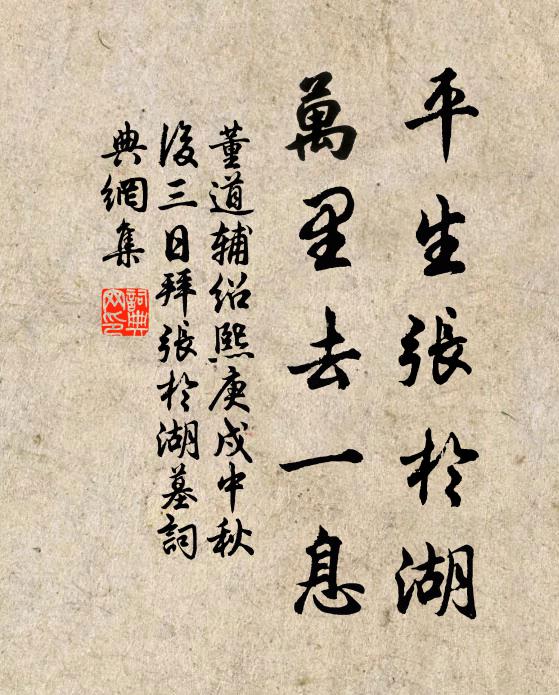 平生張於湖
萬里去一息
董道輔紹熙庚戌中秋
後三日拜張於湖墓詞
典網集
詞典網印